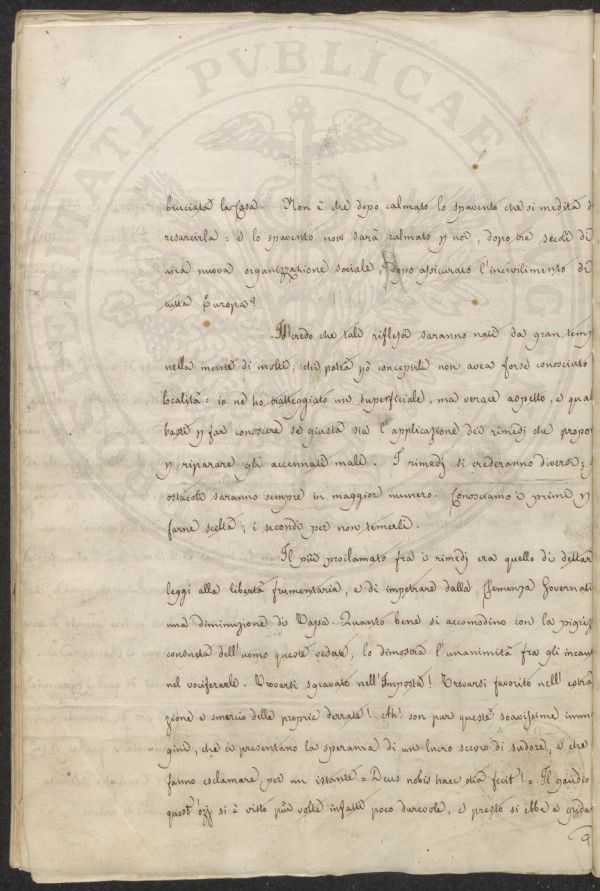 bruciata la Casa. Non è che dopo calmato lo spavento che si medita d
resarcirla: e lo spavento non sarà calmato p noi, dopo tre secoli di
una nuova organizzazione sociale, dopo assicurato l'incivilimento di
tutta Europa?
Io credo che tali riflessi saranno nati da gran temp
nella mente di molti; chi potea però concepirli non avea forse conosciuto
località: io ne ho tratteggiato un superficiale, ma verace aspetto, e qual
basti p far conoscere se giusta sia l'applicazione dei rimedi che propo
p riparare gli accennati mali. I rimedj si crederanno diversi; g
ostacoli saranno sempre in maggior numero. Conosciamo i primi p
farne scelta; i secondi per non temerli.
Il più proclamato fra i rimedj era quello di dettar
leggi alla libertà frumentaria, e di impetrare dalla Clemenza Governati
una diminuzione di Tassa. Quanto bene si accomodino con la pigriz
consueta dell'uomo queste vedute, lo dimostra l'unanimità fra gli incau
nel vociferarle. Trovarsi sgravato nell'Imposta! Trovarsi favorito nell'estra
zione e smercio delle proprie derrate! Ah! son pur queste soavissime imm
gini, che ci presentano la speranza di un lucro scevro di sudore, e che
fanno esclamare per un istante = Deus nobis haec otia fecit! = Il gaudio
quest'ozj si è visto più volte infatti poco durevole, e presto si ebbe a grida